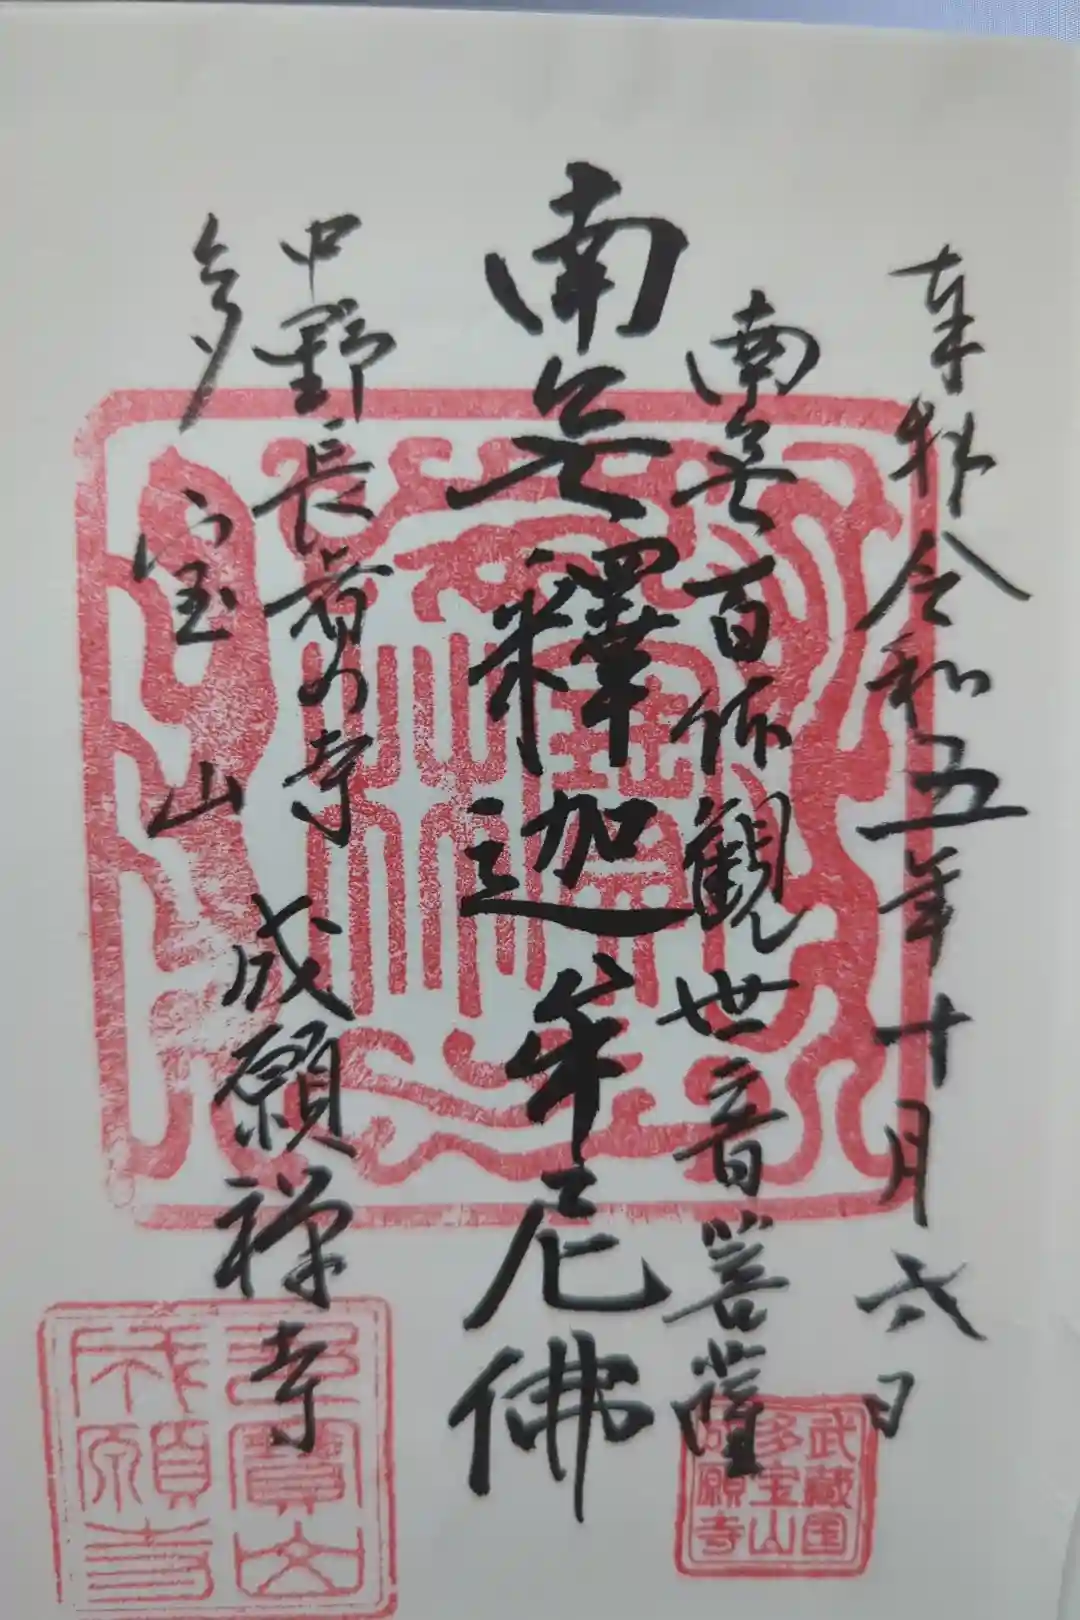 奉拝令和五年十月弐日
南無百体観世音菩薩
南無釋迦牟尼佛
中野長者の寺
多宝山 成願禅寺
武蔵国
多宝山
成願寺
多寶山
成願寺